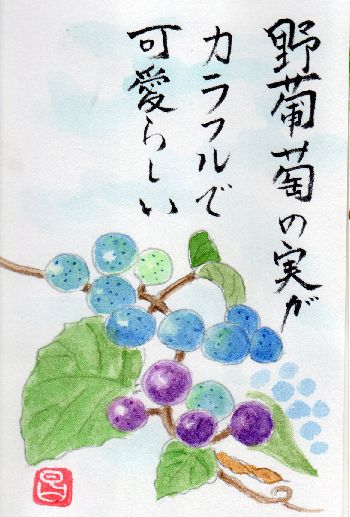 野葡萄の実が
カラフルで
可愛らしい